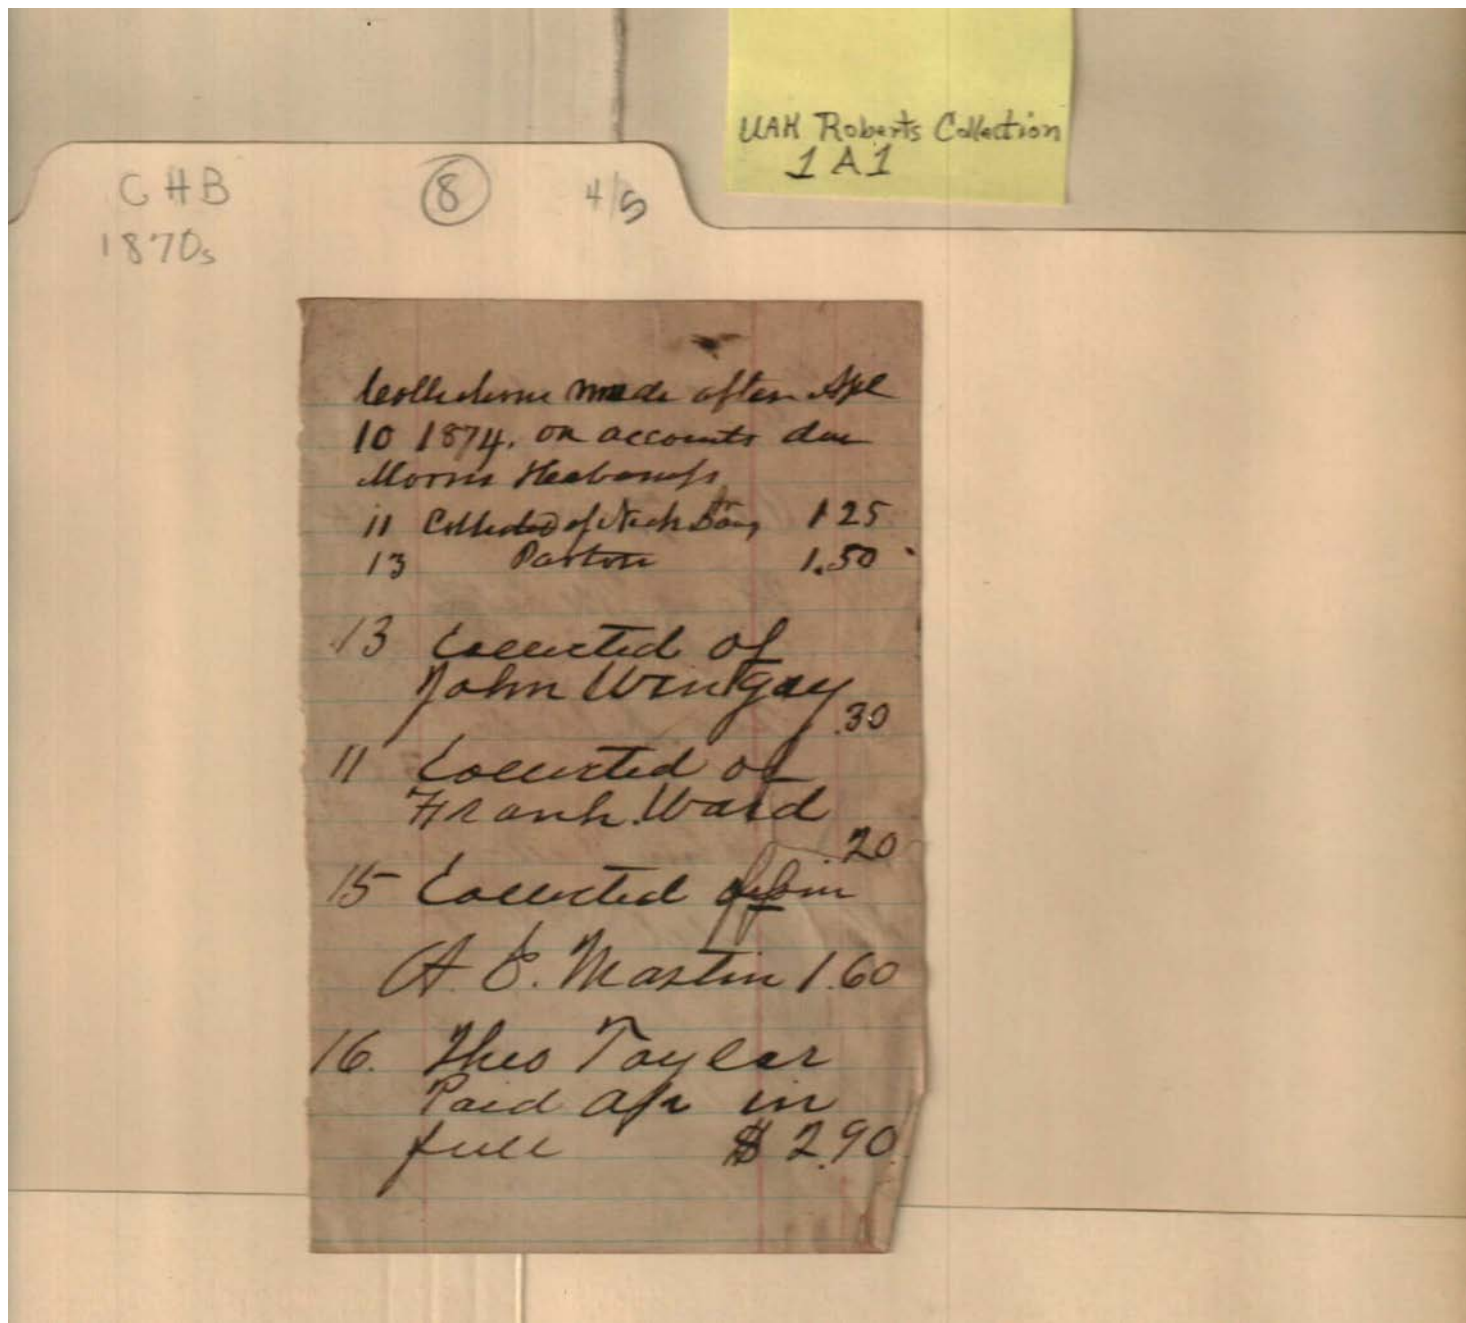 UAH Roberts Collection
1 A 1
CHB
8
4/5
1870s
Collections made after Apl
10 1874, on accounts due
Morris
11 Collected of Nick 1 25
13 Parton 1.50
13 Collected of
John Wingay
.30
11 Collected of
Frank Ward
.20
15 Collected
A. E. Martin 1.60
16. Theo Tayler
Paid a/c in
full $ 2.90